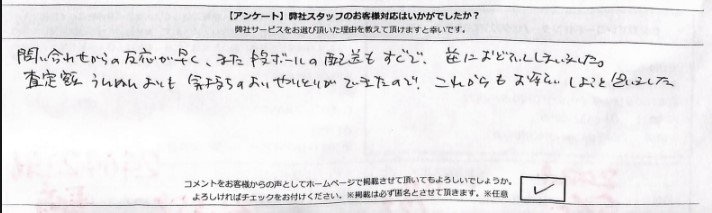 【アンケート】弊社スタッフのお客様対応はいかがでしたか？
弊社サービスをお選び頂いた理由を教えて頂けますと幸いです。
問い合わせからの反応が早く、また段ボールの配送もすぐで、逆におどろいてしまいました。
査定額うんぬんよりも気持ちのよいやりとりができたので、これからもお願いしようと思いました
コメントをお客様からの声としてホームページで掲載させて頂いてもよろしいでしょうか。
よろしければチェックをお付けください。※掲載は必ず匿名とさせて頂きます。※任意